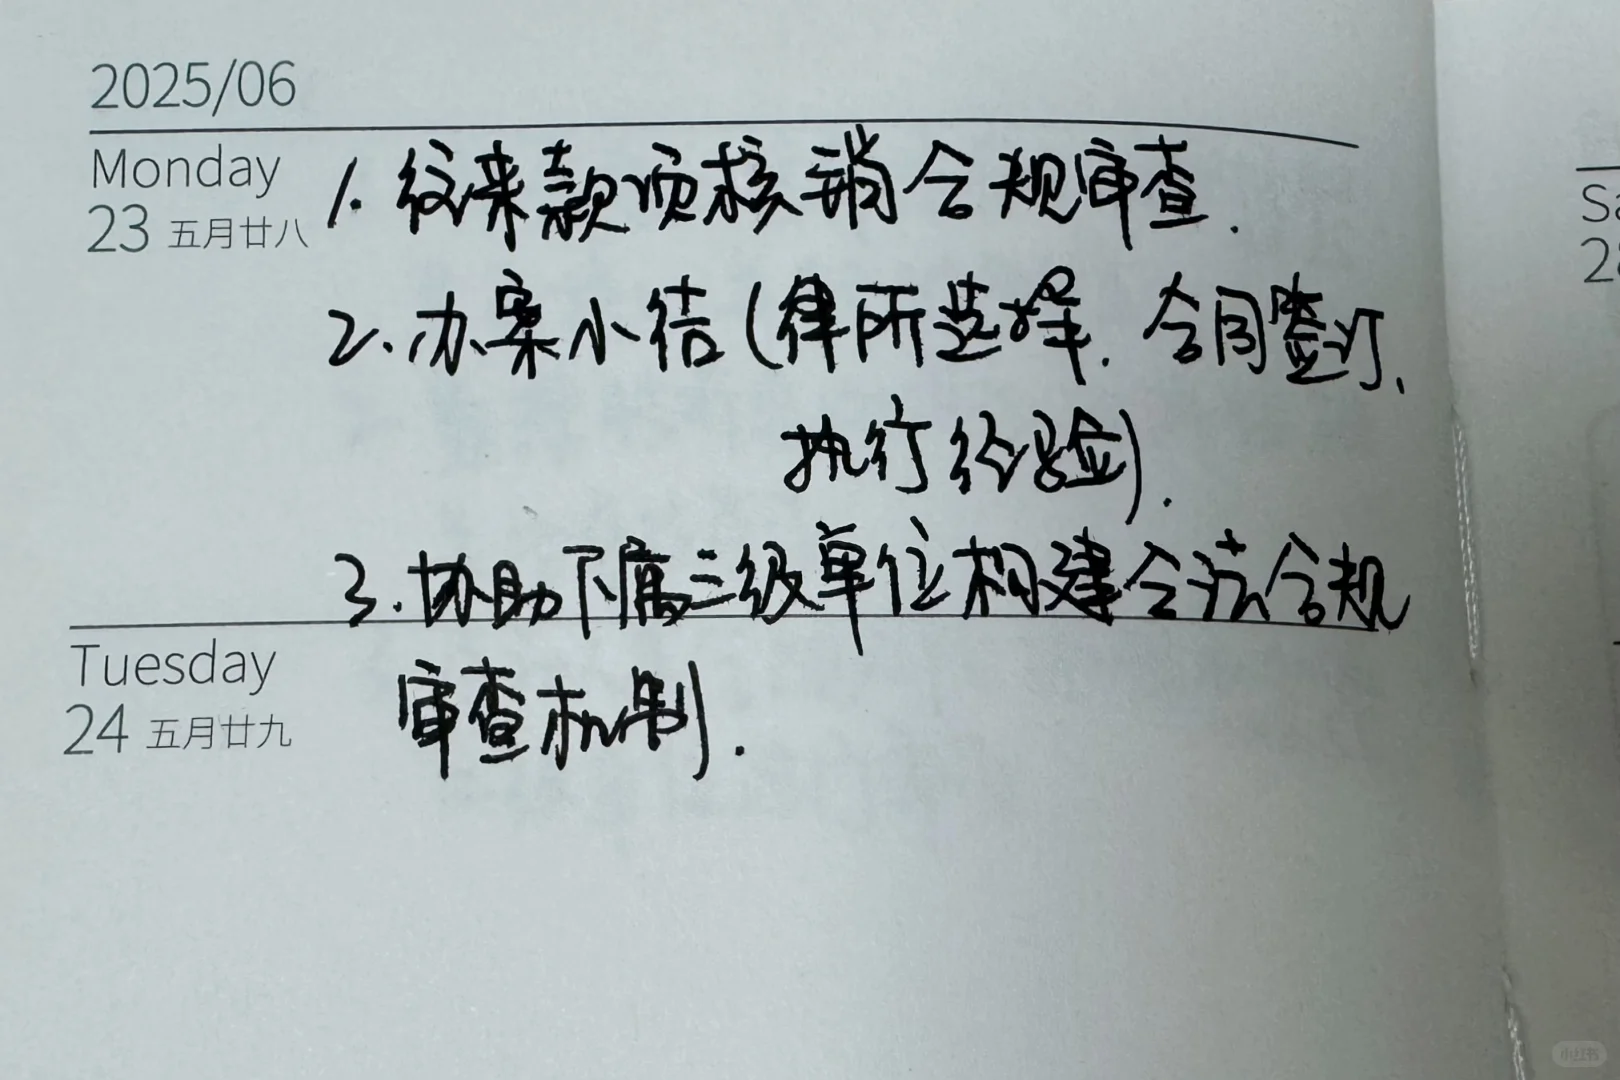 2025/06
Monday
23 五月廿八
1. 往来款项核销合规审查.
2. 办案小结(律所选择、合同签订、
执行经验).
3. 协助下属三级单位构建合法合规
Tuesday
24 五月廿九
审查机制.
Sa
28
小红书